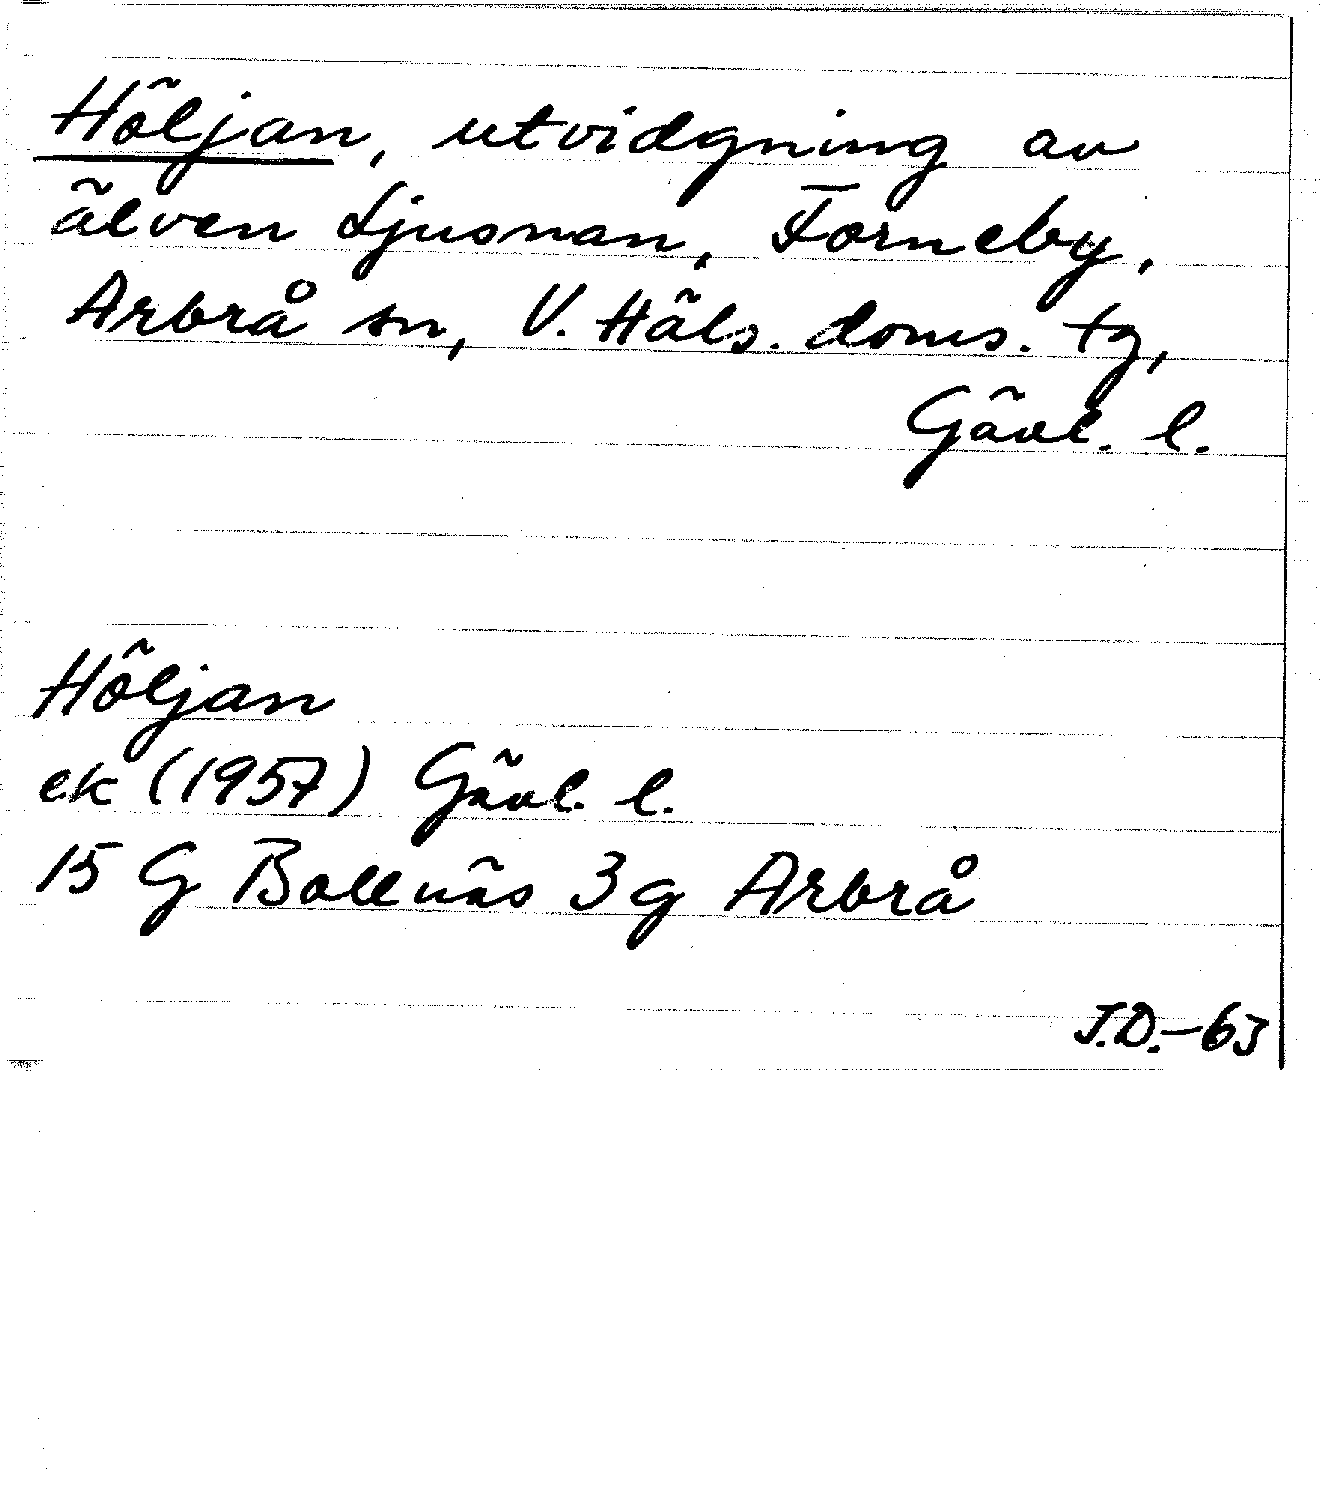 Höljan, utvidgning av
älven Ljusnan, Forneby,
Arbrå sn, V. Häls. doms. tg,
Gävl. l.
Höljan
ek (1957) Gävl. l.
15 G Bollnäs 3 g Arbrå
J.D.-63